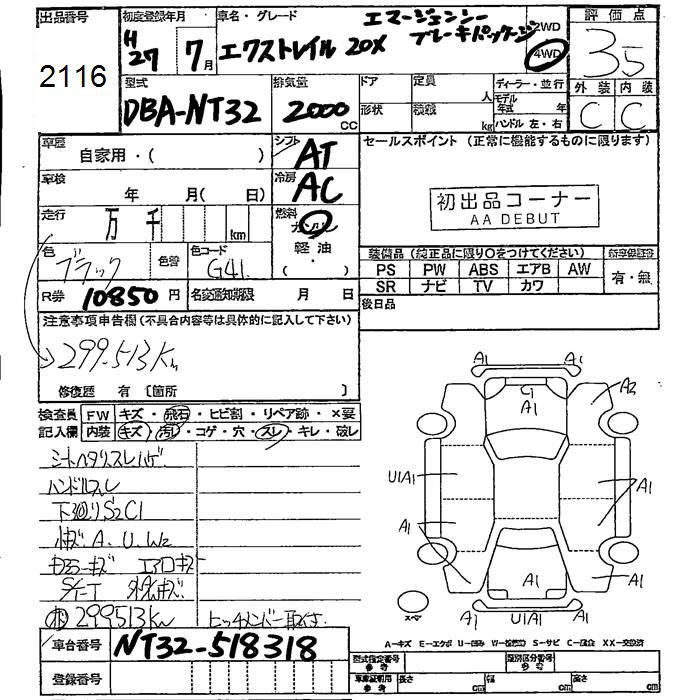 出品番号
2116
初度登録年月
H27 7月
車名・グレード
エクストレイル 20X
エマージェンシー
ブレーキパッケージ
2WD
4WD
評価点
3.5
外装 内装
C C
型式
DBA-NT32
排気量
2000 cc
ドア
定員
人
形状
積載
kg
ディーラー・並行
モデル年式 年
ハンドル 左・右
車歴
自家用・( )
シフト
AT
車検
年 月( 日)
冷房
AC
走行
万 千 km
燃料
ガソリン
軽油
( ・ )
色
ブラック
色替
色コード
G41
R券
10850 円
名変通知期限 月 日
セールスポイント (正常に機能するものに限ります)
初出品コーナー
AA DEBUT
装備品 (純正品に限り○をつけてください)
新車保証書
PS PW ABS エアB AW
SR ナビ TV カワ
有・無
後日品
注意事項申告欄(不具合内容等は具体的に記入して下さい)
299.513Km
修復歴 有 〔箇所 〕
検査員
記入欄
FW キズ・飛石・ヒビ割・リペア跡・×要
内装 キズ・汚れ・コゲ・穴・スレ・キレ・破レ
ハンドルスレ
下廻りS2C1
小キズ A. U. W2
299513Km
車台番号
NT32-518318
登録番号
A1 A1
A1
A2
U1A1
A1
A1
A1
A1
A1 U1A1 A1
スペア
A-キズ E-エクボ U-凹み W-波(補修) S-サビ C-腐食 XX-交換済
型式指定番号
参考
類別区分番号
参考
車庫証明用
参考
長さ cm
幅 cm
高さ cm